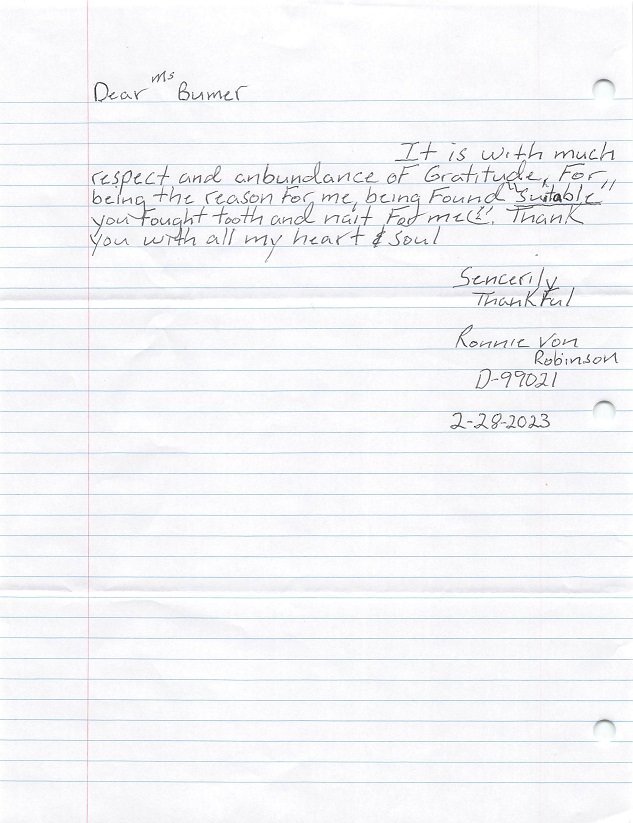 Dear Ms Bumer
It is with much
respect and anbundance of Gratitude, For
being the reason For me, being Found "Suitable"
you Fought tooth and nail For me!!. Thank
you with all my heart & Soul
Sencerily
ThankFul
Ronnie Von
Robinson
D-99021
2-28-2023